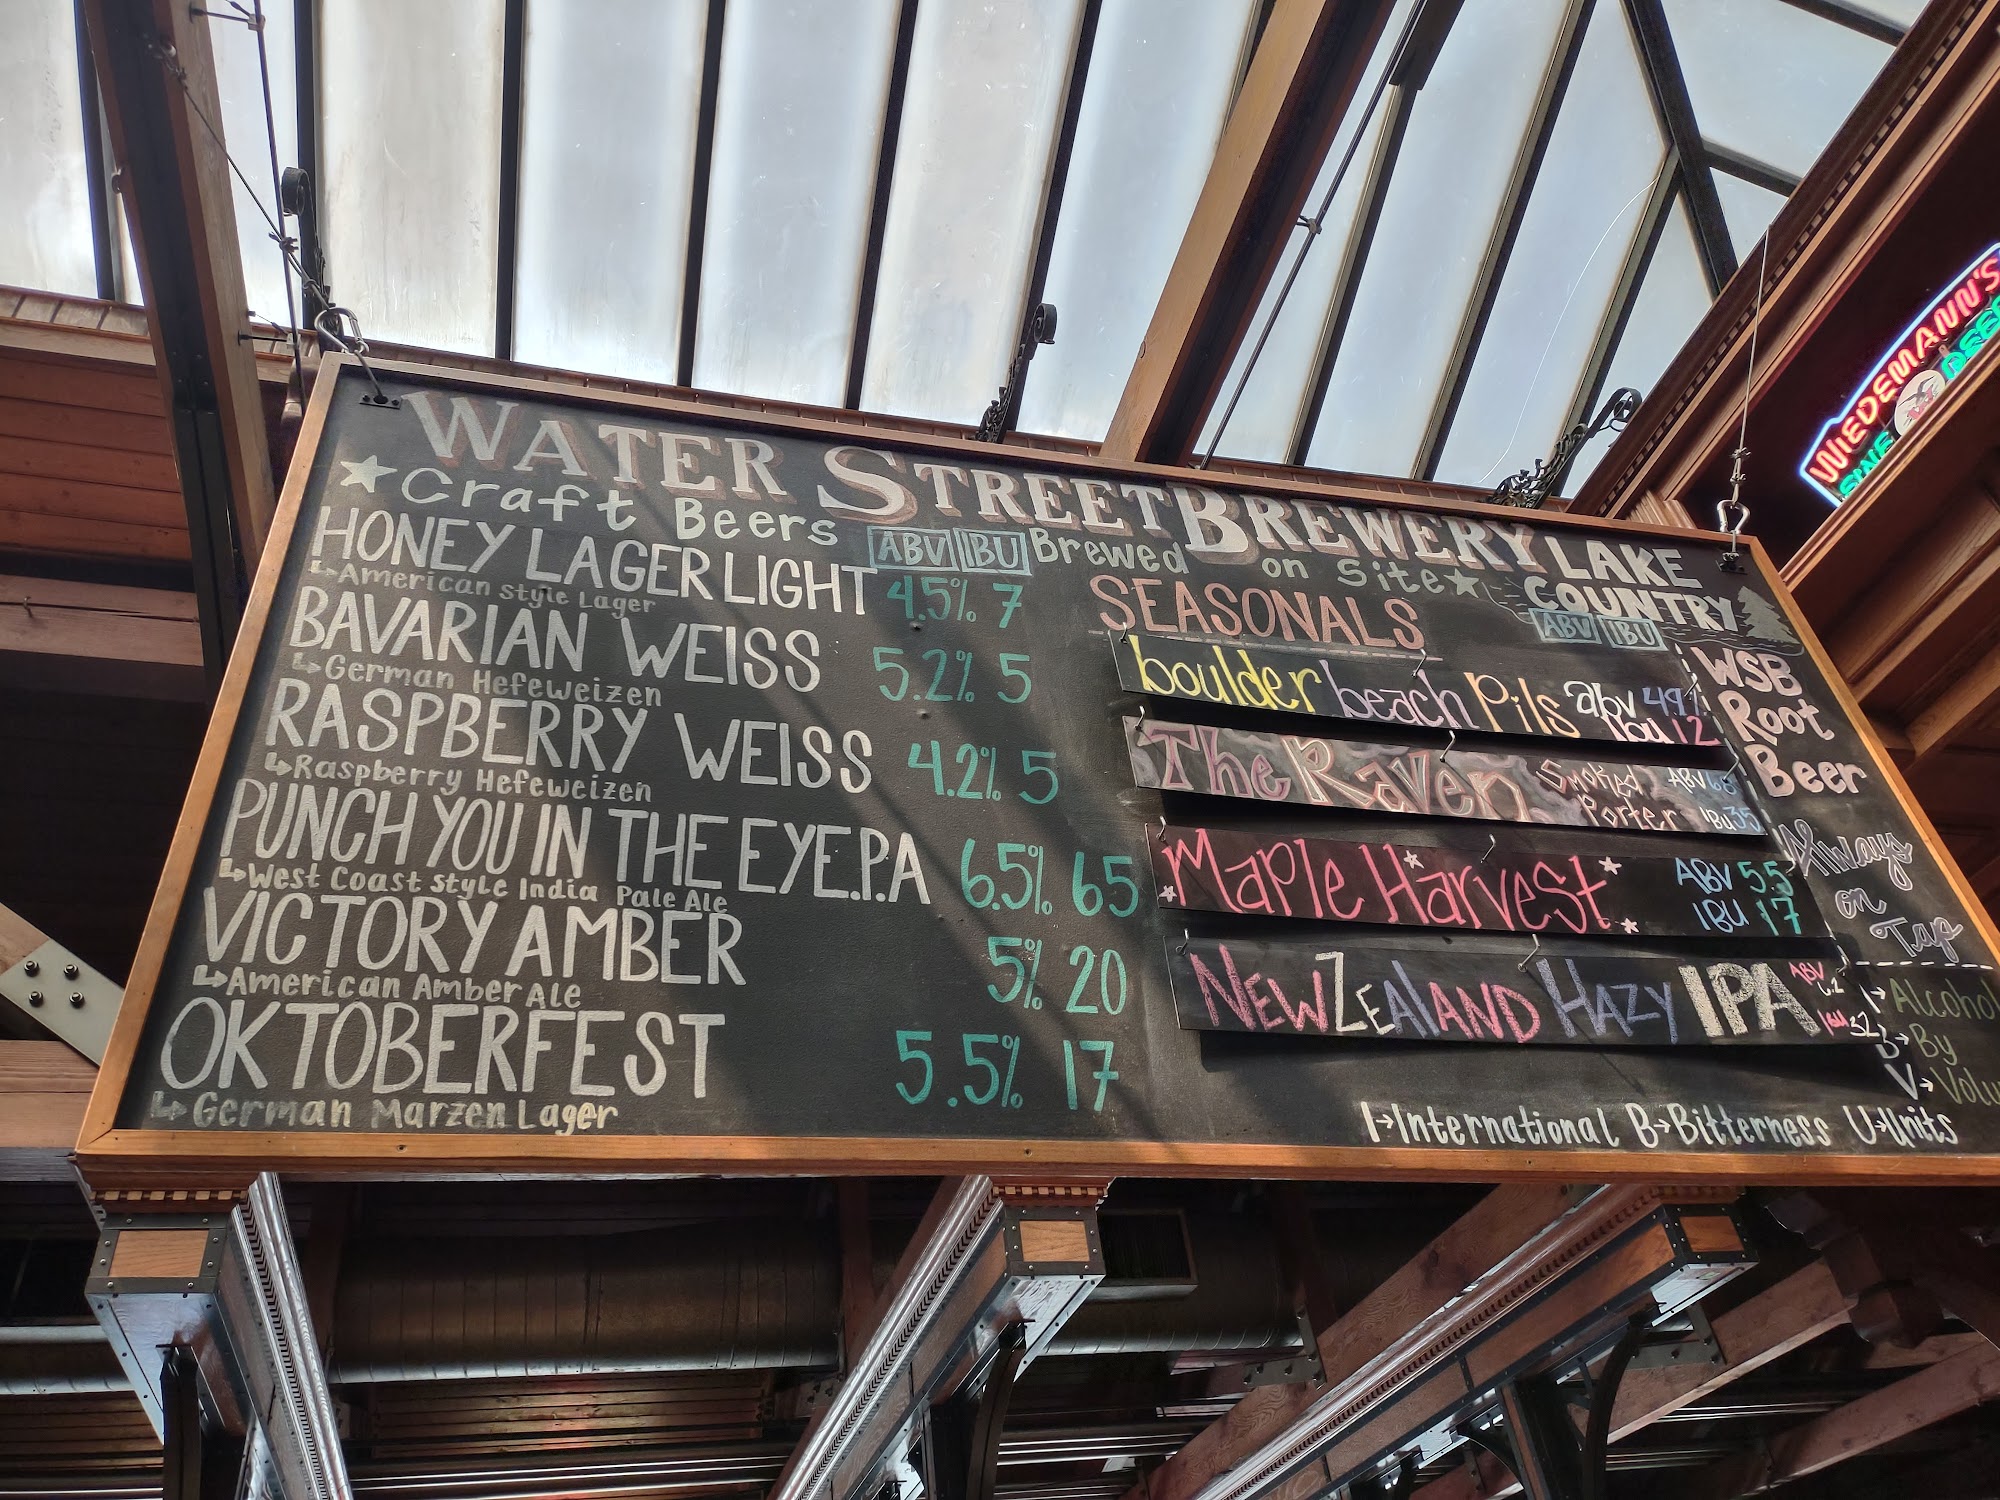 WATER STREET BREWERY LAKE COUNTRY
★ Craft Beers Brewed on Site ★
ABV IBU
HONEY LAGER LIGHT 4.5% 7
↳ American Style Lager
BAVARIAN WEISS 5.2% 5
↳ German Hefeweizen
RASPBERRY WEISS 4.2% 5
↳ Raspberry Hefeweizen
PUNCH YOU IN THE EYE.P.A 6.5% 65
↳ West Coast Style India Pale Ale
VICTORY AMBER 5% 20
↳ American Amber Ale
OKTOBERFEST 5.5% 17
↳ German Marzen Lager
SEASONALS
ABV IBU
boulder beach Pils abv 4.9%
ibu 12
The Raven Smoked Porter ABV
IBU 35
Maple Harvest ABV 5.5
IBU 17
NEW ZEALAND HAZY IPA ABV 6.2
IBU 32
WSB
Root
Beer
Always
on
Tap
A→ Alcohol
B→ By
V→
I→International B→Bitterness U→Units
WIEDEMANN'S
FINE BEER